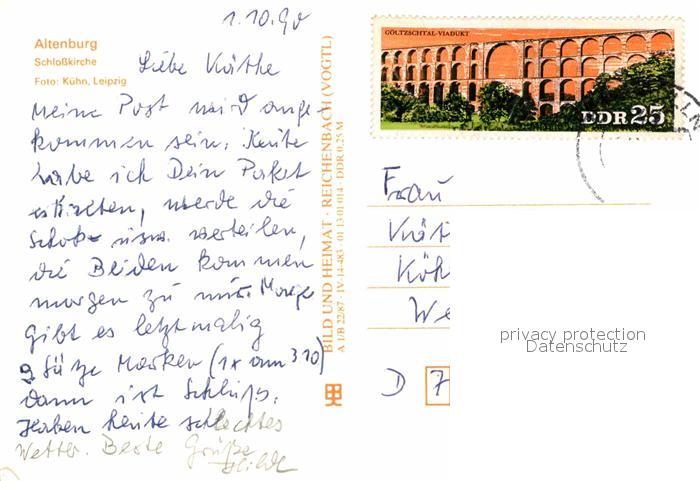 1.10.90
Altenburg
Schloßkirche
Foto: Kühn, Leipzig
Liebe Käthe
Meine Post wird ange-
kommen sein. Heute
habe ich Dein Paket
erhalten, werde die
Schok usw. verteilen,
die Beiden kommen
morgen zu mir. Morgen
gibt es letztmalig
9 Sätze Marken (1x am 3 10)
dann ist Schluß.
Haben heute schlechtes
Wetter. Beste Grüße
Hilde
BILD UND HEIMAT · REICHENBACH (VOGTL)
A 1/B 22/87 · IV-14-483 · 01 13 01 014 · DDR 0,25 M
GÖLTZSCHTAL-VIADUKT
DDR 25
Frau
Kät
Köh
We
D 7
privacy protection
Datenschutz